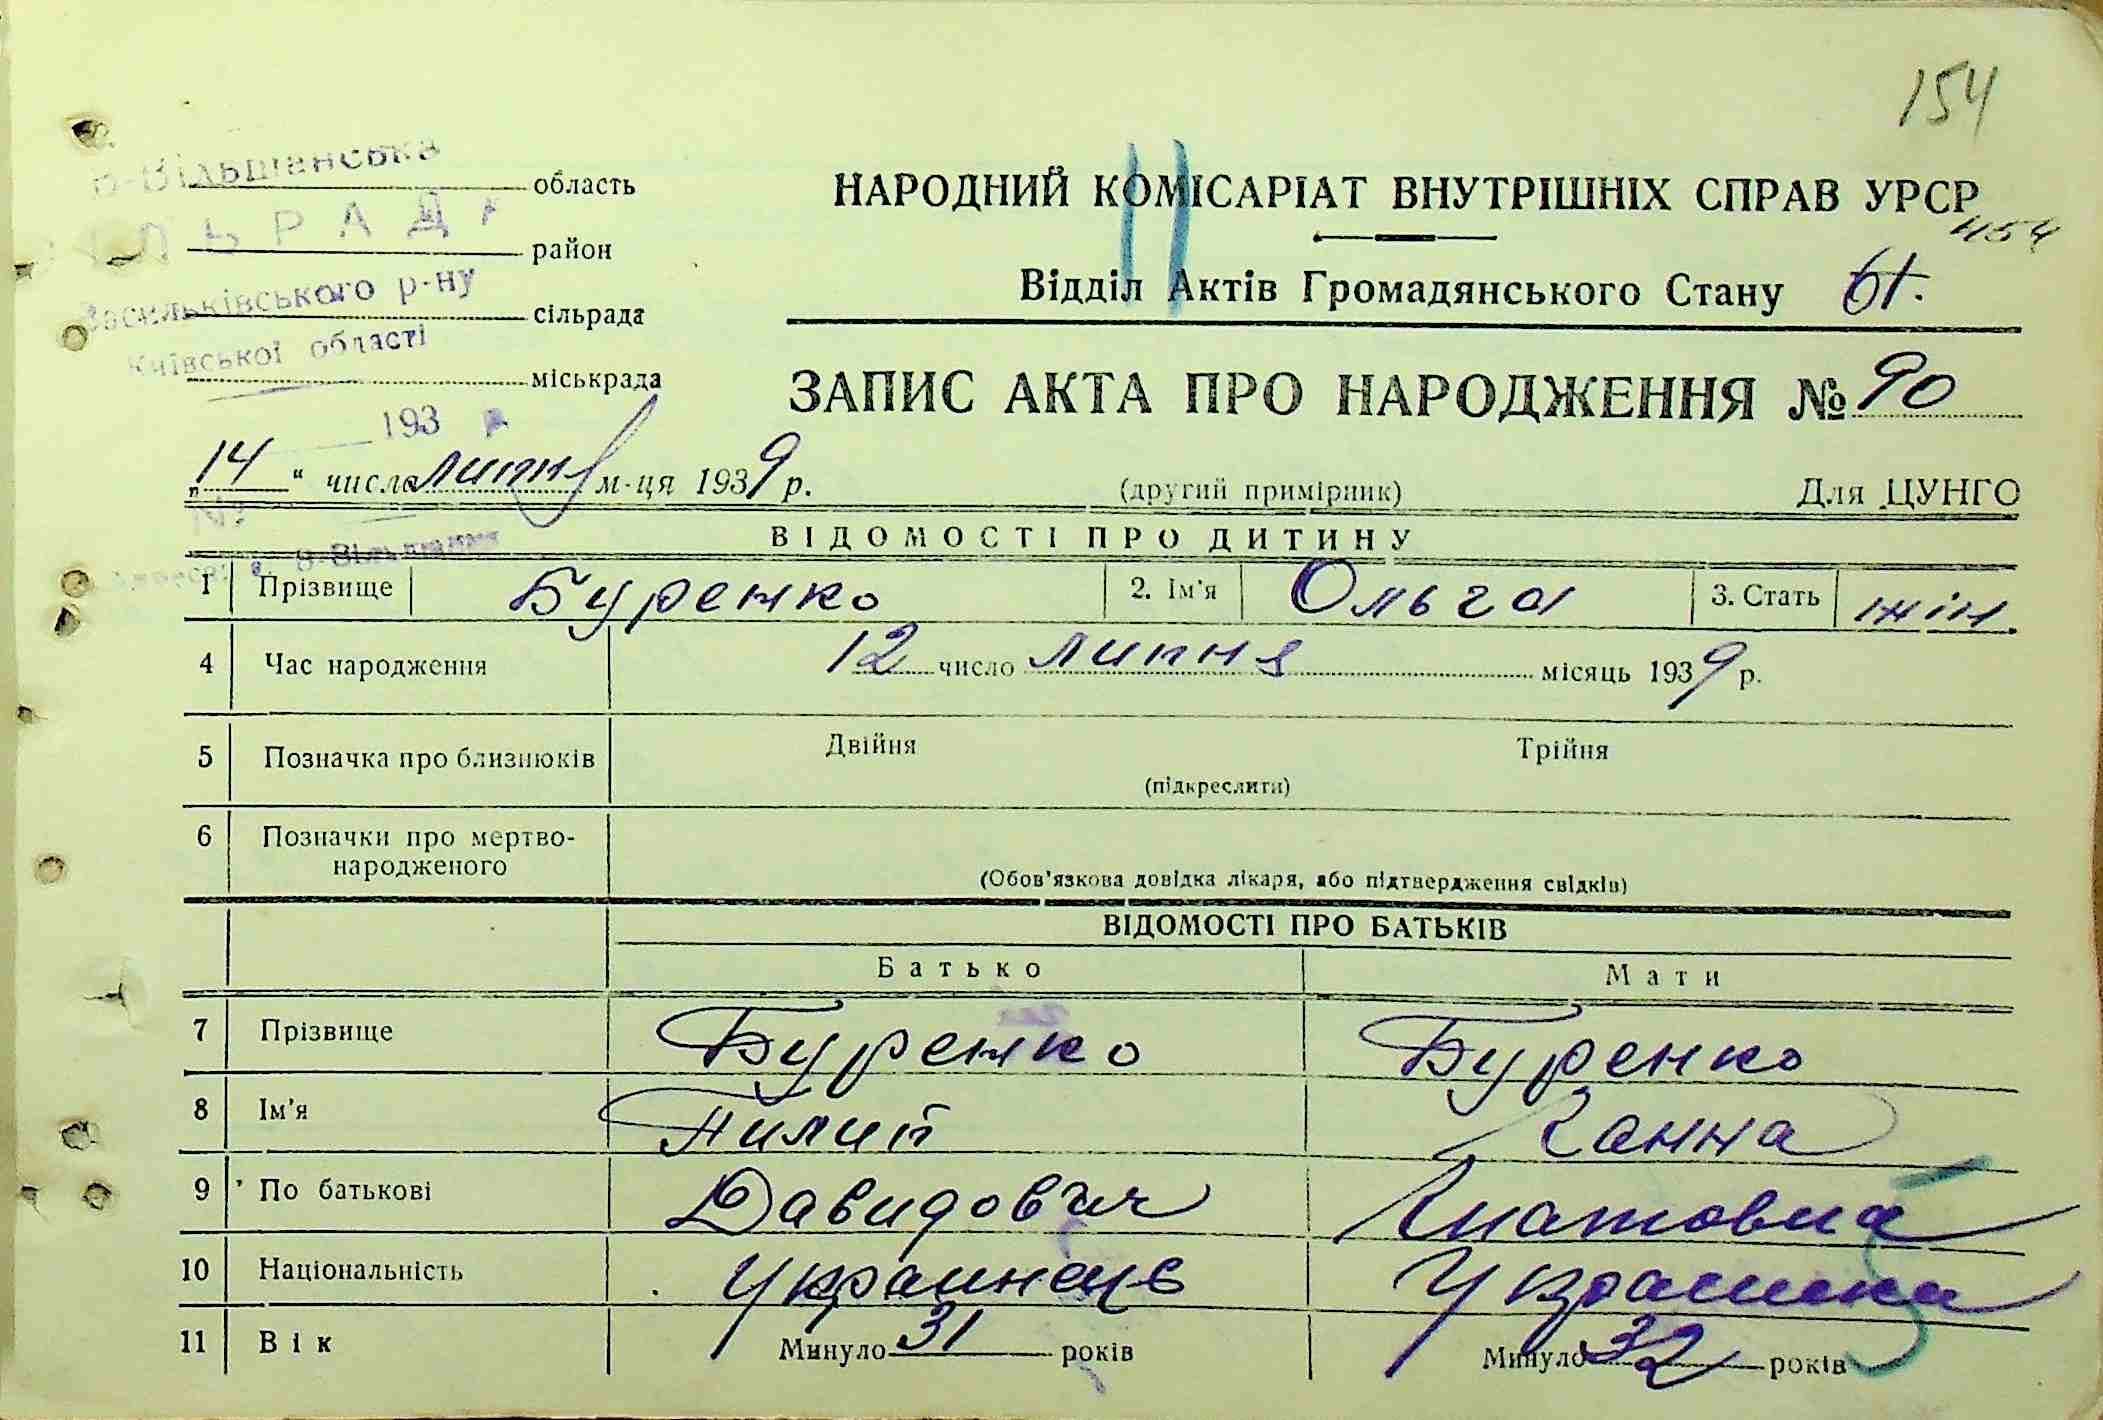 154
В-Вільшанська область
СІЛЬРАДА район
Васильківського р-ну сільрада
Київської області міськрада
193
НАРОДНИЙ КОМІСАРІАТ ВНУТРІШНІХ СПРАВ УРСР
154
Відділ Актів Громадянського Стану 61.
ЗАПИС АКТА ПРО НАРОДЖЕННЯ № 90
„14“ числа липня м-ця 1939 р. (другий примірник) Для ЦУНГО
№
В-Вільшанка
ВІДОМОСТІ ПРО ДИТИНУ
1 Прізвище Буренко 2. Ім'я Ольга 3. Стать жін.
4 Час народження 12 число липня місяць 1939 р.
5 Позначка про близнюків Двійня Трійня
(підкреслити)
6 Позначки про мертво-
народженого
(Обов'язкова довідка лікаря, або підтвердження свідків)
ВІДОМОСТІ ПРО БАТЬКІВ
Батько Мати
7 Прізвище Буренко Буренко
8 Ім'я Пилип Ганна
9 По батькові Давидович Гнатовна
10 Національність Украинець Украинка
11 Вік Минуло 31 років Минуло 32 років